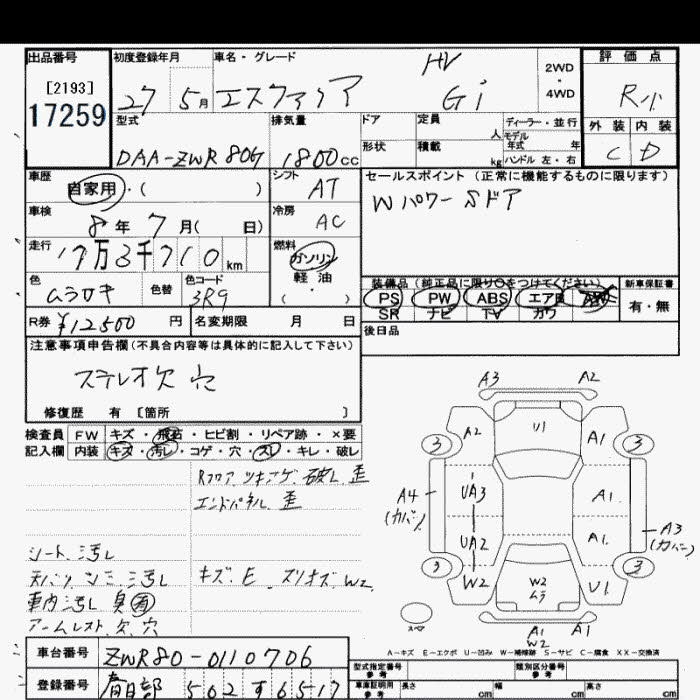 出品番号 初度登録年月 車名・グレード HV 2WD・4WD 評価点
[2193]
17259 27 5月 エスクァイア Gi R小
型式 排気量 ドア 定員 人 ディーラー・並行 外装 内装
DAA-ZWR80G 1800cc 形状 積載 kg モデル年式 年 ハンドル 左・右 C D
車歴 自家用・( ) シフト AT セールスポイント(正常に機能するものに限ります)
車検 8年 7月( 日) 冷房 AC Wパワー Sドア
走行 17万3千710km 燃料 ガソリン 軽油 ( ・ )
色 ムラサキ 色替 色コード 3R9
装備品(純正品に限り○をつけてください) 新車保証書
PS PW ABS エアB 有・無
SR ナビ TV カワ
R券 ¥12500円 名変期限 月 日 後日品
注意事項申告欄(不具合内容等は具体的に記入して下さい)
ステレオ欠 穴
修復歴 有 [箇所 ]
検査員 FW キズ・飛石・ヒビ割・リペア跡・×要
記入欄 内装 キズ・汚レ・コゲ・穴・スレ・キレ・破レ
Rフロア ツキアゲ 破レ 歪
エンドパネル 歪
シート 汚レ
天バリ シミ 汚レ キズ.E スリキズ W2
車内汚レ 臭有
アームレスト 欠 穴
A3 A2
3 A2 U1 A1 3
A4(カバー) UA3 A1
UA2 A1 A3(カバー)
3 W2 W2 ムラ U1 3
スペア A1 W2 A1
A−キズ E−エクボ U−凹み W−補修跡 S−サビ C−腐食 XX−交換済
車台番号 ZWR80-0110706
登録番号 春日部 502 す 6517
型式指定番号 参考 類別区分番号 参考
車庫証明用 参考 長さ cm 幅 cm 高さ cm